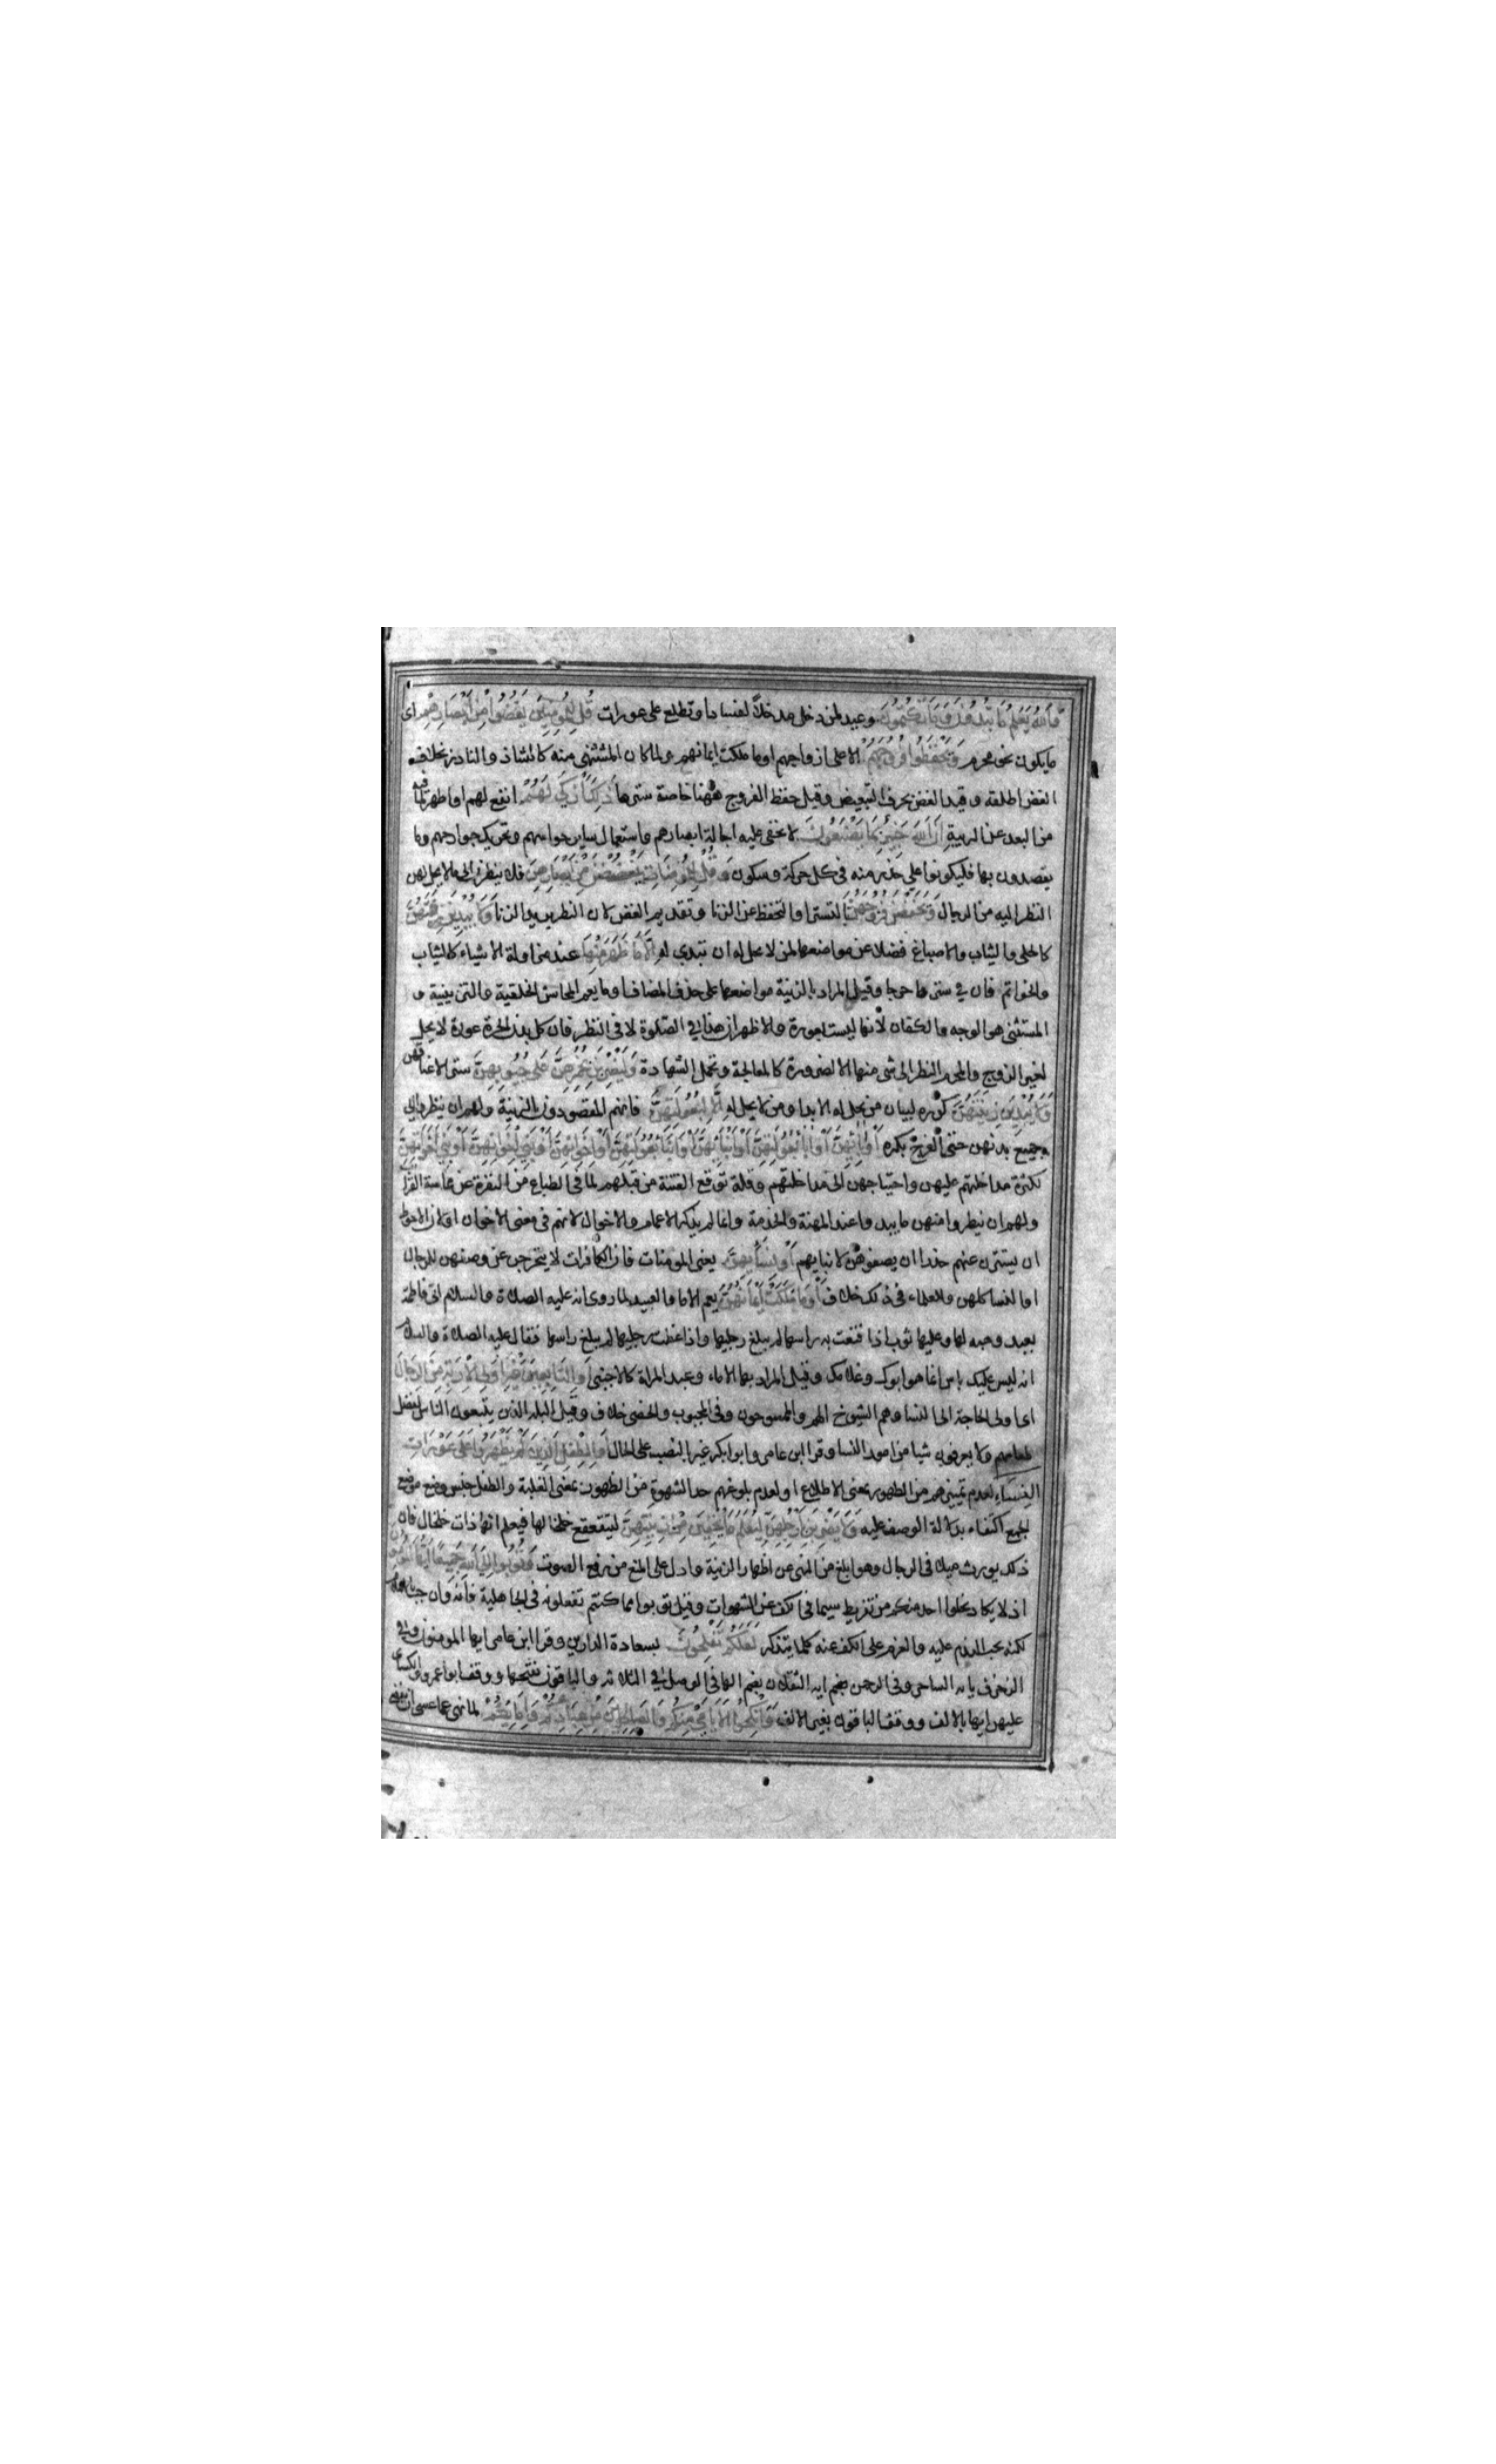 وَاللّٰهُ يَعْلَمُ مَا تُبْدُونَ وَمَا تَكْتُمُونَ وعيد لمن دخل مدخلاً لفساد او تطلع على عورات قُلْ لِلْمُؤْمِنِينَ يَغُضُّوا مِنْ أَبْصَارِهِمْ اى
ما يكون نحو محرم وَيَحْفَظُوا فُرُوجَهُمْ الا على ازواجهم اوما ملكت ايمانهم ولما كان المستثنى منه كالشاذ والنادر بخلاف
الغض اطلقه وقيد الغض بحرف التبعيض وقيل حفظ الفروج ههنا خاصة سترها ذَلِكَ أَزْكَى لَهُمْ انفع لهم او اطهر لما فيه
من البعد عن الريبة إِنَّ اللهَ خَبِيرٌ بِمَا يَصْنَعُونَ لا يخفى عليه اجالة ابصارهم واستعمال ساير حواسهم وتحريك جوارحهم وما
يقصدون بها فليكونوا على حذر منه فى كل حركة وسكون وَقُلْ لِلْمُؤْمِنَاتِ يَغْضُضْنَ مِنْ أَبْصَارِهِنَّ فلا ينظرن الى ما لا يحل لهن
النظر اليه من الرجال وَيَحْفَظْنَ فُرُوجَهُنَّ بالتستر او التحفظ عن الزنا وتقديم الغض لان النظر بريد الزنا وَلَا يُبْدِينَ زِينَتَهُنَّ
كالحلى والثياب والاصباغ فضلا عن مواضعها لمن لا يحل له ان تبدى له إِلَّا مَا ظَهَرَ مِنْهَا عند مزاولة الاشياء كالثياب
والخواتم فان في سترها حرجا وقيل المراد بالزينة مواضعها على حذف المضاف او ما يعم المحاسن الخلقية والتزيينية و
المستثنى هو الوجه والكفان لأنها ليست بعورة والاظهر ان هذا في الصلوة لا فى النظر فان كل بدن الحرة عورة لا يحل
لغير الزوج والمحرم النظر الى شى منها الا لضرورة كالمعالجة وتحمل الشهادة وَلْيَضْرِبْنَ بِخُمُرِهِنَّ عَلَى جُيُوبِهِنَّ سترا لاعناقهن
وَلَا يُبْدِينَ زِينَتَهُنَّ كرره لبيان من يحل له الابدا ومن لا يحل له إِلَّا لِبُعُولَتِهِنَّ فانهم المقصودون بالزينة ولهم ان ينظروا الى
جميع بدنهن حتى الفرج بكره أَوْ آبَائِهِنَّ أَوْ آبَاءِ بُعُولَتِهِنَّ أَوْ أَبْنَائِهِنَّ أَوْ أَبْنَاءِ بُعُولَتِهِنَّ أَوْ إِخْوَانِهِنَّ أَوْ بَنِي إِخْوَانِهِنَّ أَوْ بَنِي أَخَوَاتِهِنَّ
لكثرة مداخلتهم عليهن واحتياجهن الى مداخلتهم وقلة توقع الفتنة من قبلهم لما فى الطباع من النفرة عن مماسة القرائب
ولهم ان ينظروا منهن ما يبدو عند المهنة والخدمة وانما لم يذكر الاعمام والاخوال لانهم فى معنى الاخوان او لان الاحوط
ان يستترن عنهم حذرا ان يصفوهن لابنايهم أَوْ نِسَائِهِنَّ يعنى المومنات فان الكافرات لا يتحرجن عن وصفهن للرجال
او النسا كلهن وللعلماء فى ذلك خلاف أَوْ مَا مَلَكَتْ أَيْمَانُهُنَّ يعم الاما والعبيد لما روى انه عليه الصلاة والسلام اتى فاطمة
بعبد وهبه لها وعليها ثوب اذا قنعت به راسها لم يبلغ رجليها واذا غطت رجليها لم يبلغ راسها فقال عليه الصلاة والسلام
انه ليس عليك باس انما هو ابوك وغلامك وقيل المراد بها الاماء وعبد المراة كالاجنبى أَوِ التَّابِعِينَ غَيْرِ أُولِي الْإِرْبَةِ مِنَ الرِّجَالِ
اى اولى الحاجة الى النسا وهم الشيوخ الهم والممسوحون وفى المجبوب والخصى خلاف وقيل البله الذين يتبعون الناس لفضل
طعامهم ولا يعرفون شيا من امور النسا وقرا ابن عامر وابو بكر غير بالنصب على الحال أَوِ الطِّفْلِ الَّذِينَ لَمْ يَظْهَرُوا عَلَى عَوْرَاتِ
النِّسَاءِ لعدم تمييزهم من الظهور بمعنى الاطلاع او لعدم بلوغهم حد الشهوة من الظهور بمعنى الغلبة والطفل جنس وضع موضع
الجمع اكتفاء بدلالة الوصف عليه وَلَا يَضْرِبْنَ بِأَرْجُلِهِنَّ لِيُعْلَمَ مَا يُخْفِينَ مِنْ زِينَتِهِنَّ ليتقعقع خلخالها فيعلم انها ذات خلخال فان
ذلك يورث ميلا فى الرجال وهو ابلغ من النهى عن اظهار الزينة وادل على المنع من رفع الصوت وَتُوبُوا إِلَى اللهِ جَمِيعًا أَيُّهَ الْمُؤْمِنُونَ
اذ لا يكاد يخلوا احد منكم من تفريط سيما فى الكف عن الشهوات وقيل توبوا مما كنتم تفعلونه فى الجاهلية فانه وان جب بالاسلام
لكنه يجب الندم عليه والعزم على الكف عنه كلما يتذكر لَعَلَّكُمْ تُفْلِحُونَ بسعادة الدارين وقرا ابن عامر ايها المومنون وفى
الزخرف يا ايه الساحر وفى الرحمن ايه الثقلان بضم الها فى الوصل في الثلاثه والباقون بفتحها ووقف ابو عمرو والكسائى
عليهن ايها بالالف ووقف الباقون بغير الالف وَأَنْكِحُوا الْأَيَامَى مِنْكُمْ وَالصَّالِحِينَ مِنْ عِبَادِكُمْ وَإِمَائِكُمْ لما نهى عما عسى ان